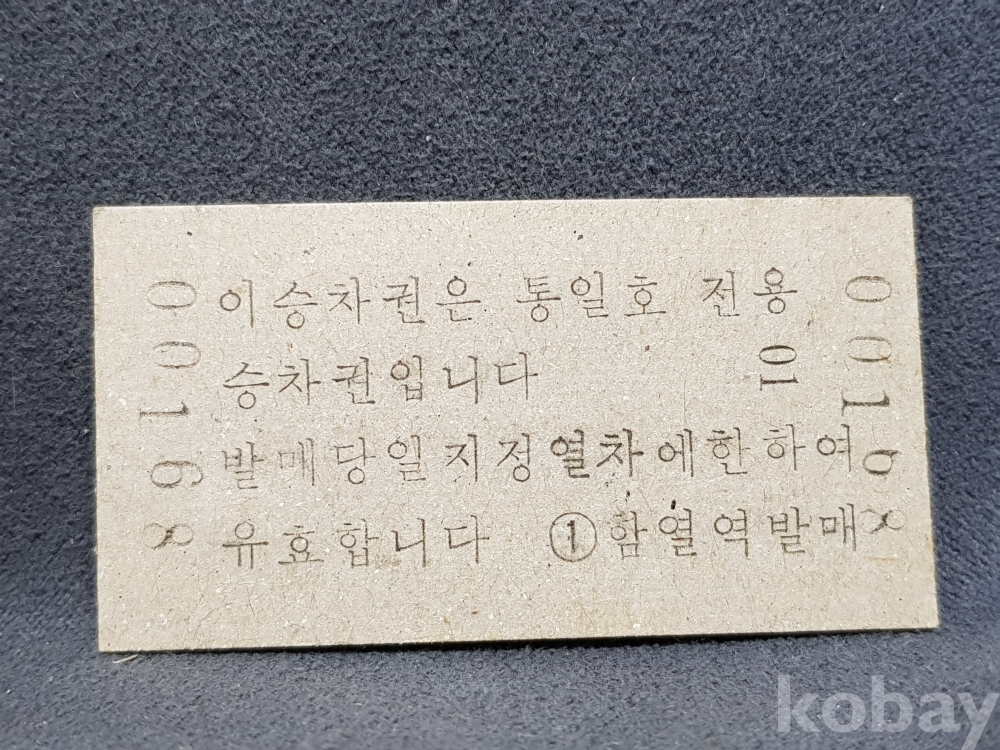 이승차권은 통일호 전용
승차권입니다 01
발매당일지정열차에한하여
유효합니다 ①함열역발매
00168
00168
kobay